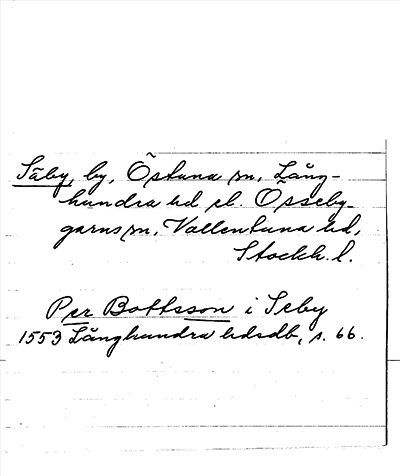 Säby, by, Östuna sn, Lång-
hundra hd el. Össeby-
garns sn, Vallentuna hd,
Stockh. l.
Per Bottsson i Seby
1553 Långhundra hdsdb, s. 66.